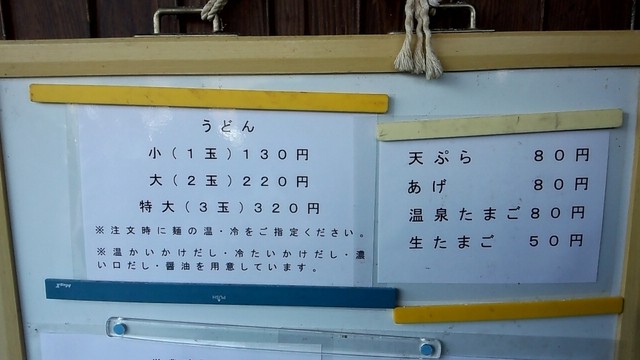 うどん
小(1玉)130円
大(2玉)220円
特大(3玉)320円
※注文時に麺の温・冷をご指定ください。
※温かいかけだし・冷たいかけだし・濃
い口だし・醤油を用意しています。
天ぷら 80円
あげ 80円
温泉たまご80円
生たまご 50円
PUSH